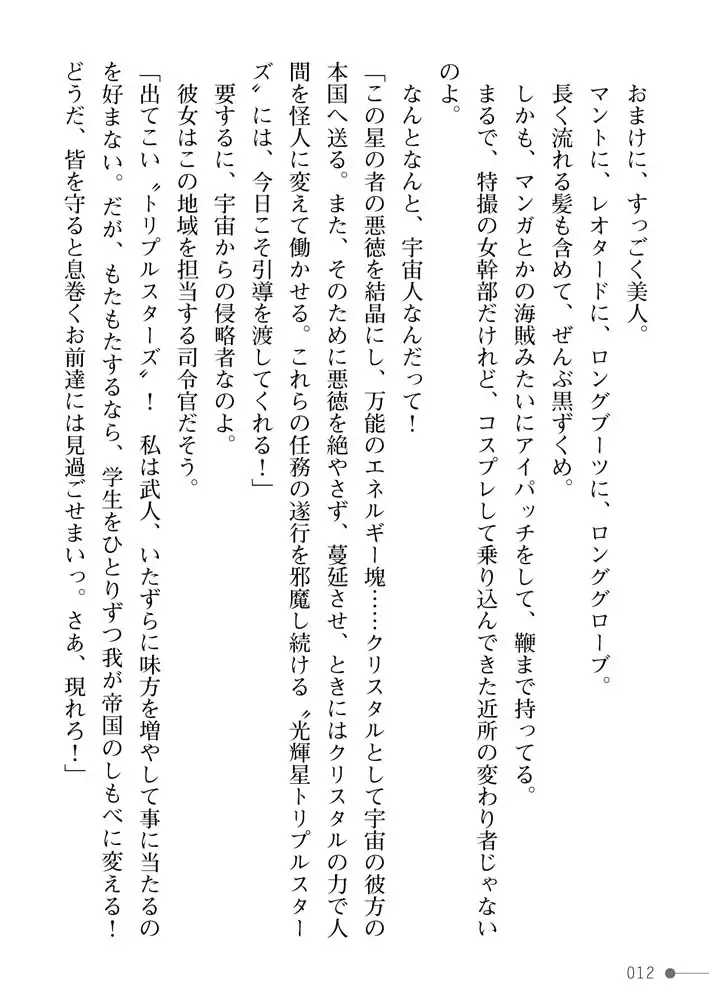 おまけに、すっごく美人。
マントに、レオタードに、ロングブーツに、ロンググローブ。
長く流れる髪も含めて、ぜんぶ黒ずくめ。
しかも、マンガとかの海賊みたいにアイパッチをして、鞭まで持ってる。
まるで、特撮の女幹部だけれど、コスプレして乗り込んできた近所の変わり者じゃない
のよ。
なんとなんと、宇宙人なんだって！
「この星の者の悪徳を結晶にし、万能のエネルギー塊……クリスタルとして宇宙の彼方の
本国へ送る。また、そのために悪徳を絶やさず、蔓延させ、ときにはクリスタルの力で人
間を怪人に変えて働かせる。これらの任務の遂行を邪魔し続ける〝光輝星トリプルスター
ズ〟には、今日こそ引導を渡してくれる！」
要するに、宇宙からの侵略者なのよ。
彼女はこの地域を担当する司令官だそう。
「出てこい〝トリプルスターズ〟！　私は武人、いたずらに味方を増やして事に当たるの
を好まない。だが、もたもたするなら、学生をひとりずつ我が帝国のしもべに変える！
どうだ、皆を守ると息巻くお前達には見過ごせまいっ。さあ、現れろ！」
012